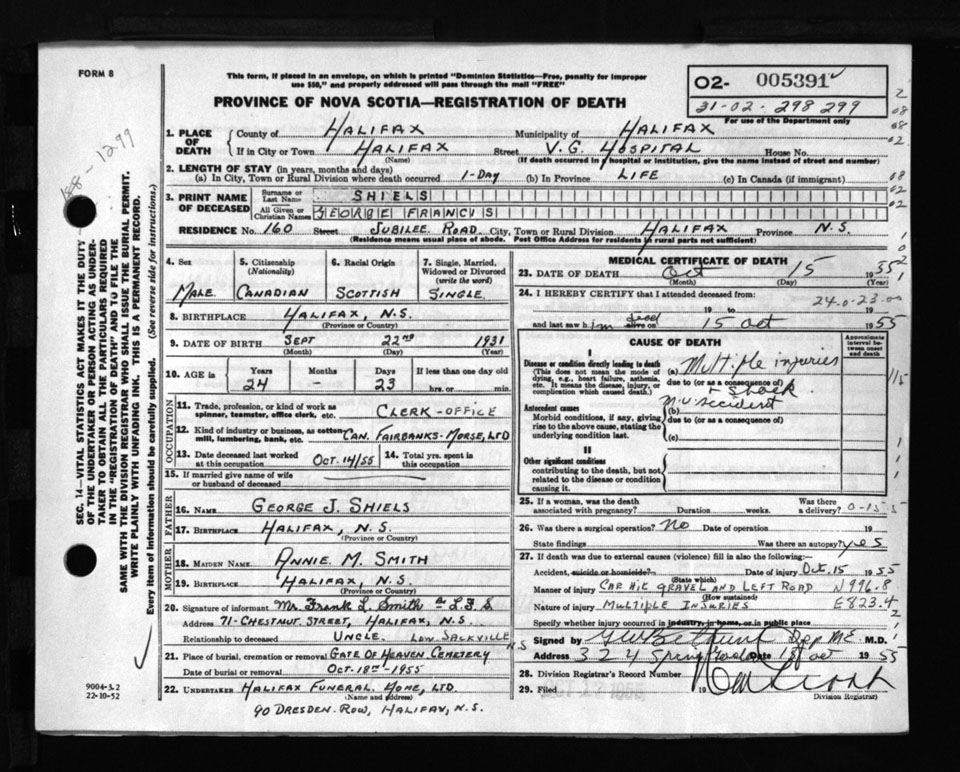 FORM 8
This form, if placed in an envelope, on which is printed "Dominion Statistics—Free, penalty for improper
use $50," and properly addressed will pass through the mail "FREE"
PROVINCE OF NOVA SCOTIA—REGISTRATION OF DEATH
02- 005391
31-02-298 299
For use of the Department only
1. PLACE OF DEATH
County of HALIFAX Municipality of HALIFAX
If in City or Town HALIFAX Street V.G. HOSPITAL House No.
(Name) (If death occurred in a hospital or institution, give the name instead of street and number)
2. LENGTH OF STAY (in years, months and days)
(a) In City, Town or Rural Division where death occurred 1-DAY (b) In Province LIFE (c) In Canada (if immigrant)
3. PRINT NAME OF DECEASED
Surname or Last Name SHIELS
All Given or Christian Names GEORGE FRANCIS
RESIDENCE No. 160 Street JUBILEE ROAD. City, Town or Rural Division HALIFAX Province N.S.
(Residence means usual place of abode. Post Office Address for residents in rural parts not sufficient)
4. Sex MALE
5. Citizenship (Nationality) CANADIAN
6. Racial Origin SCOTTISH
7. Single, Married, Widowed or Divorced (write the word) SINGLE
8. BIRTHPLACE HALIFAX, N.S.
(Province or Country)
9. DATE OF BIRTH SEPT 22ND 1931
(Month) (Day) (Year)
10. AGE in Years Months Days If less than one day old
24 - 23 hrs. or min.
OCCUPATION
11. Trade, profession, or kind of work as spinner, teamster, office clerk, etc. CLERK-OFFICE
12. Kind of industry or business, as cotton-mill, lumbering, bank, etc. CAN. FAIRBANKS-MORSE, LTD
13. Date deceased last worked at this occupation OCT. 14/55 14. Total yrs. spent in this occupation
15. If married give name of wife or husband of deceased
FATHER
16. NAME GEORGE J. SHIELS
17. BIRTHPLACE HALIFAX, N.S.
(Province or Country)
MOTHER
18. MAIDEN NAME ANNIE M. SMITH
19. BIRTHPLACE HALIFAX, N.S.
(Province or Country)
20. Signature of informant Mr. Frank L. Smith L.F.S
Address 71-CHESTNUT. STREET, HALIFAX, N.S.
Relationship to deceased UNCLE. LOW. SACKVILLE N.S
21. Place of burial, cremation or removal GATE OF HEAVEN CEMETERY
Date of burial or removal OCT-18TH-1955
22. UNDERTAKER HALIFAX FUNERAL HOME, LTD.
(Name and address)
90 DRESDEN. ROW, HALIFAX, N.S.
MEDICAL CERTIFICATE OF DEATH
23. DATE OF DEATH Oct 15 1955
(Month) (Day) (Year)
24. I HEREBY CERTIFY that I attended deceased from:
24-0-23-00
19 to 19
and last saw him dead alive on 15 oct 1955
CAUSE OF DEATH
Approximate interval between onset and death
I
Disease or condition directly leading to death
(This does not mean the mode of dying, e.g., heart failure, asthenia, etc. It means the disease, injury, or complication which caused death.)
(a) Multiple injuries
due to (or as a consequence of)
& Shock
Antecedent causes
Morbid conditions, if any, giving rise to the above cause, stating the underlying condition last.
(b) M.V. accident
due to (or as a consequence of)
(c)
II
Other significant conditions
contributing to the death, but not related to the disease or condition causing it.
25. If a woman, was the death associated with pregnancy? Duration weeks. Was there a delivery?
26. Was there a surgical operation? No Date of operation 19
State findings Was there an autopsy? yes
27. If death was due to external causes (violence) fill in also the following:—
Accident, suicide or homicide? Date of injury Oct. 15 1955
(State which)
Manner of injury CAR HIT GRAVEL AND LEFT ROAD N996.8
(How sustained)
Nature of injury MULTIPLE INJURIES E823.4
Specify whether injury occurred in industry, in home, or in public place
Signed by Dep M.E. M.D.
Address 324 Spring Garden Date 15 oct 1955
28. Division Registrar's Record Number
29. Filed 19
Division Registrar
SEC. 14—VITAL STATISTICS ACT MAKES IT THE DUTY
OF THE UNDERTAKER OR PERSON ACTING AS UNDER-
TAKER TO OBTAIN ALL THE PARTICULARS REQUIRED
IN THE "REGISTRATION OF DEATH" AND TO FILE THE
SAME WITH THE DIVISION REGISTRAR WHO SHALL ISSUE THE BURIAL PERMIT.
WRITE PLAINLY WITH UNFADING INK. THIS IS A PERMANENT RECORD.
Every item of information should be carefully supplied. (See reverse side for instructions.)
9004-3.2
22-10-52